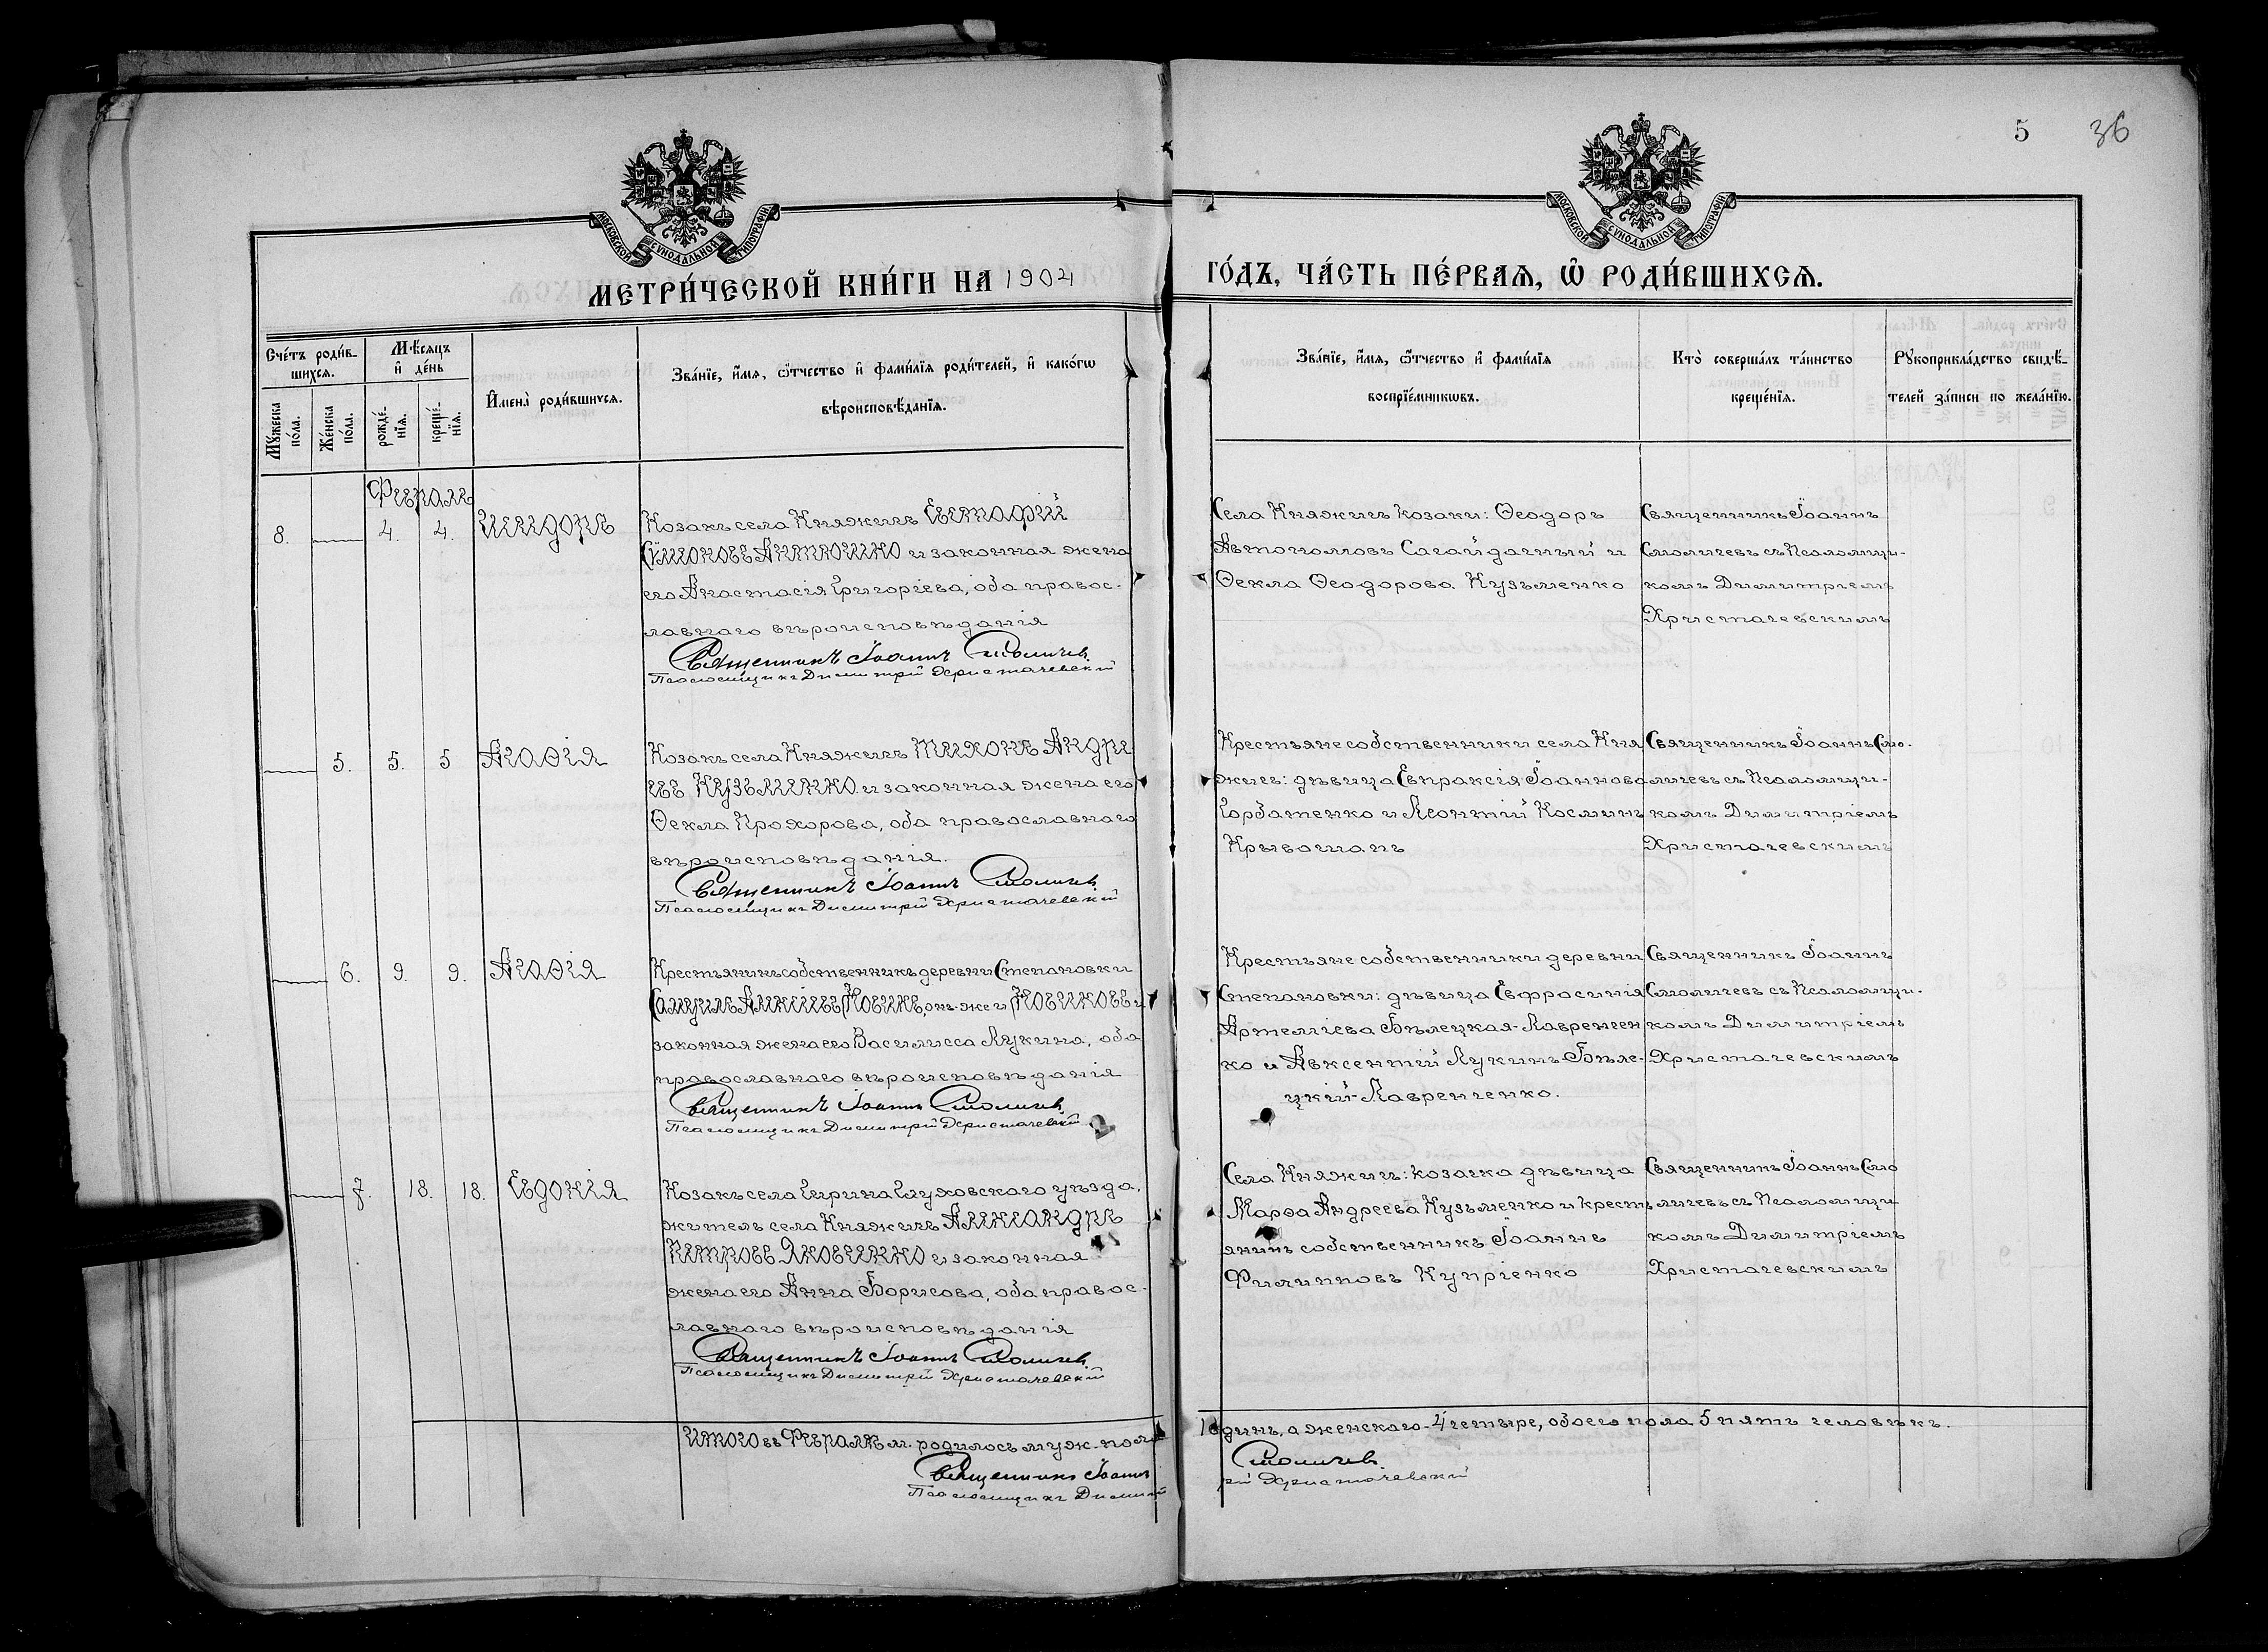 5 36
МОСКОВСКОЙ СУНОДАЛЬНОЙ ТИПОГРАФІИ
МОСКОВСКОЙ СУНОДАЛЬНОЙ ТИПОГРАФІИ
МЕТРИ́ЧЕСКОЙ КНИ́ГИ НА 1904
ГО́ДЪ, ЧА́СТЬ ПЕ́РВАЯ, Ѿ РОДИ́ВШИХСЯ.
Сче́тъ роди́в-
шихся.
Мѣ́сяцъ
и҆ де́нь
Му́жеска
по́ла.
Же́нска
по́ла.
рожде́-
нїя.
креще́-
нїя.
И҆мена̀ роди́вшихся.
Зва́нїе, и҆́мя, ѻ҆́тчество и҆ фами́лїя роди́телей, и҆ како́гѡ
вѣроисповѣ́данїя.
Зва́нїе, и҆́мя, ѻ҆́тчество и҆ фами́лїя
воспрїе́мникѡвъ.
Кто̀ соверша́лъ та́инство
креще́нїя.
Рꙋкоприкла́дство свидѣ́-
телей за́писи по жела́нїю.
Февраль
8. 4. 4. Исидоръ
Козакъ села Княжичъ Евстафій
Симоновъ Антошко и законная жена
его Анастасія Григоріева, оба правос-
лавнаго вѣроисповѣданія
Священникъ Іоаннъ Смоличевъ
Псаломщикъ Димитрій Христачевскій
Села Княжичъ козаки: Ѳеодоръ
Автономовъ Сагайдачный и
Ѳекла Ѳеодорова Кузьменко
Священникъ Іоаннъ
Смоличевъ съ Псаломщи-
комъ Димитріемъ
Христачевскимъ
5. 5. 5 Агаѳія
Козакъ села Княжичъ Тихонъ Андре
евъ Кузьменко и законная жена его
Ѳекла Прохорова, оба православнаго
вѣроисповѣданія.
Священникъ Іоаннъ Смоличевъ
Псаломщикъ Димитрій Христачевскій
Крестьяне собственники села Кня
жичъ: дѣвица Евпраксія Іоаннова
Горбатенко и Леонтій Косминъ
Крывошапъ
Священникъ Іоаннъ Смо-
личевъ съ Псаломщи-
комъ Димитріемъ
Христачевскимъ
6. 9. 9. Агаѳія
Крестьянинъ собственникъ деревни Степановки
Самуилъ Алексіевъ Новикъ, онъ-же и Новиковъ и
законная жена его Василисса Лукина, оба
православнаго вѣроисповѣданія
Священникъ Іоаннъ Смоличевъ
Псаломщикъ Димитрій Христачевскій
Крестьяне собственники деревни
Степановки: дѣвица Евфросинія
Артеміева Бѣлецкая-Лавренчен
ко и Авксентій Лукинъ Бѣле-
цкій-Лавренченко.
Священникъ Іоаннъ
Смоличевъ съ Псаломщи-
комъ Димитріемъ
Христачевскимъ
7. 18. 18. Евдокія
Козакъ села Гирина Глуховскаго уѣзда,
житель села Княжичъ Александръ
Петровъ Яковенко и законная
жена его Анна Борисова, оба правос-
лавнаго вѣроисповѣданія
Священникъ Іоаннъ Смоличевъ
Псаломщикъ Димитрій Христачевскій
Села Княжичъ: козачка дѣвица
Марѳа Андреева Кузьменко и кресть
янинъ собственникъ Іоаннъ
Филипповъ Купріенко
Священникъ Іоаннъ Смо
личевъ съ Псаломщи
комъ Димитріемъ
Христачевскимъ
Итого въ Февралѣ м. родилось муж-пола 1 одинъ, а женскаго-4 четыре, обоего пола 5 пять человѣкъ.
Священникъ Іоаннъ Смоличевъ
Псаломщикъ Димитрій Христачевскій